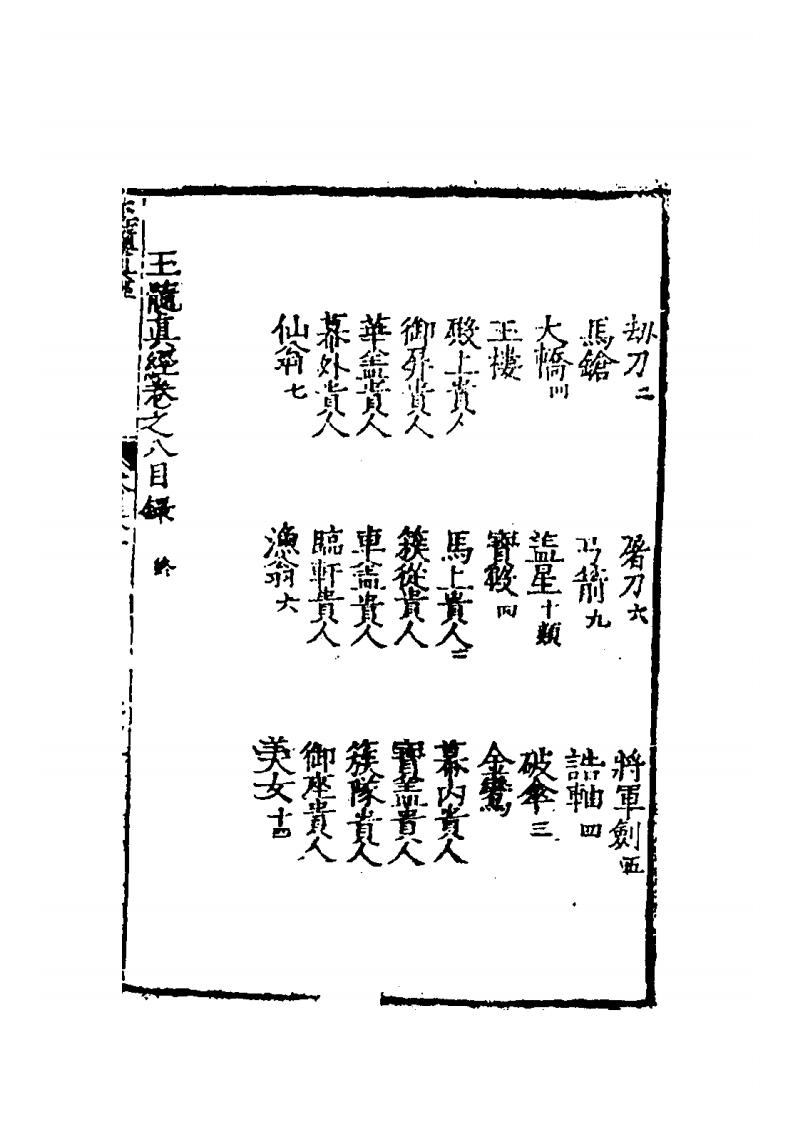 刼刀二 屠刀六 將軍劍五
馬鎗 弓箭九 誥軸四
大轎四 盖星十類 破傘三
玉樓 寶殿四 金鸞
殿上貴人 馬上貴人二 幕内貴人
御屏貴人 簇從貴人 寶盖貴人
華盖貴人 車盖貴人 簇隊貴人
幕外貴人 臨軒貴人 御座貴人
仙翁七 漁翁六 美女十四
玉髓真經卷之八目録 終